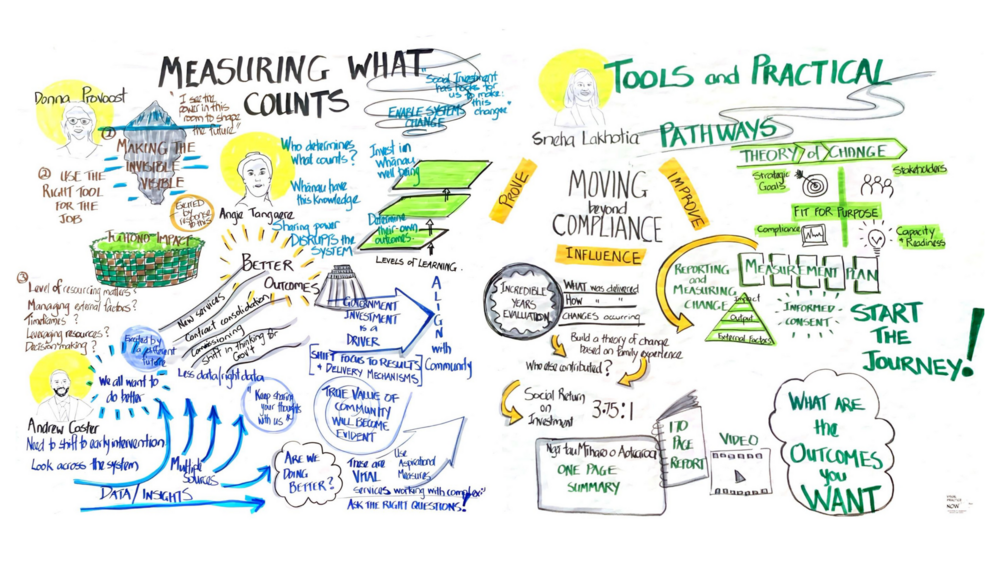 MEASURING WHAT
COUNTS
Donna Provoost
"I see the
power in this
room to shape
the future"
① MAKING THE
INVISIBLE
VISIBLE
② USE THE
RIGHT TOOL
FOR THE
JOB
Excited by
response
to this
IMPACT
③
Level of resourcing matters?
Managing external factors?
Timeframes?
Leveraging resources?
Decision making?
"Social Investment
has hooks for
us to make
this
change"
ENABLE SYSTEMS
CHANGE
Angie Tangaere
Who determines
What counts?
Whānau have
this knowledge
Sharing power
DISRUPTS the
SYSTEM
Invest in
Whānau
well being
Determine
their own
outcomes
LEVELS of LEARNING.
BETTER
OUTCOMES
New services
Contract consolidation
Commissioning
Shift in thinking for
Gov't
Less data/right data
GOVERNMENT
INVESTMENT
IS A
DRIVER
SHIFT FOCUS TO RESULTS
+ DELIVERY MECHANISMS
ALIGN
with
Community
Excited by
a different
future
We all want to
do better
Andrew Coster
Need to shift to early intervention
Look across the system
Multiple
Sources
DATA/INSIGHTS
Keep sharing
your thoughts
with us!
TRUE VALUE OF
COMMUNITY
WILL BECOME
EVIDENT
ARE WE
DOING
BETTER?
These are
VITAL
Use
Aspirational
Measures
services working with complex"
ASK THE RIGHT QUESTIONS!
TOOLS and PRACTICAL
PATHWAYS
Sneha Lakhotia
PROVE
MOVING
beyond
COMPLIANCE
IMPROVE
INFLUENCE
THEORY of CHANGE
Strategic
Goals
Stakeholders
FIT FOR PURPOSE
Compliance
Capacity
+ Readiness
INCREDIBLE
YEARS
EVALUATION
WHAT was delivered
HOW " "
CHANGES occurring
Build a theory of change
based on family experience
Who else contributed?
Social Return
on
Investment
3.75:1
REPORTING
AND
MEASURING
CHANGE
MEASUREMENT PLAN
Impact
Output
External Factors
INFORMED
CONSENT
START
THE
JOURNEY!
Ngā tau Mīharo o Aotearoa
ONE PAGE
SUMMARY
PAGE
REPORT
VIDEO
WHAT ARE
the
OUTCOMES
you
WANT
NOW